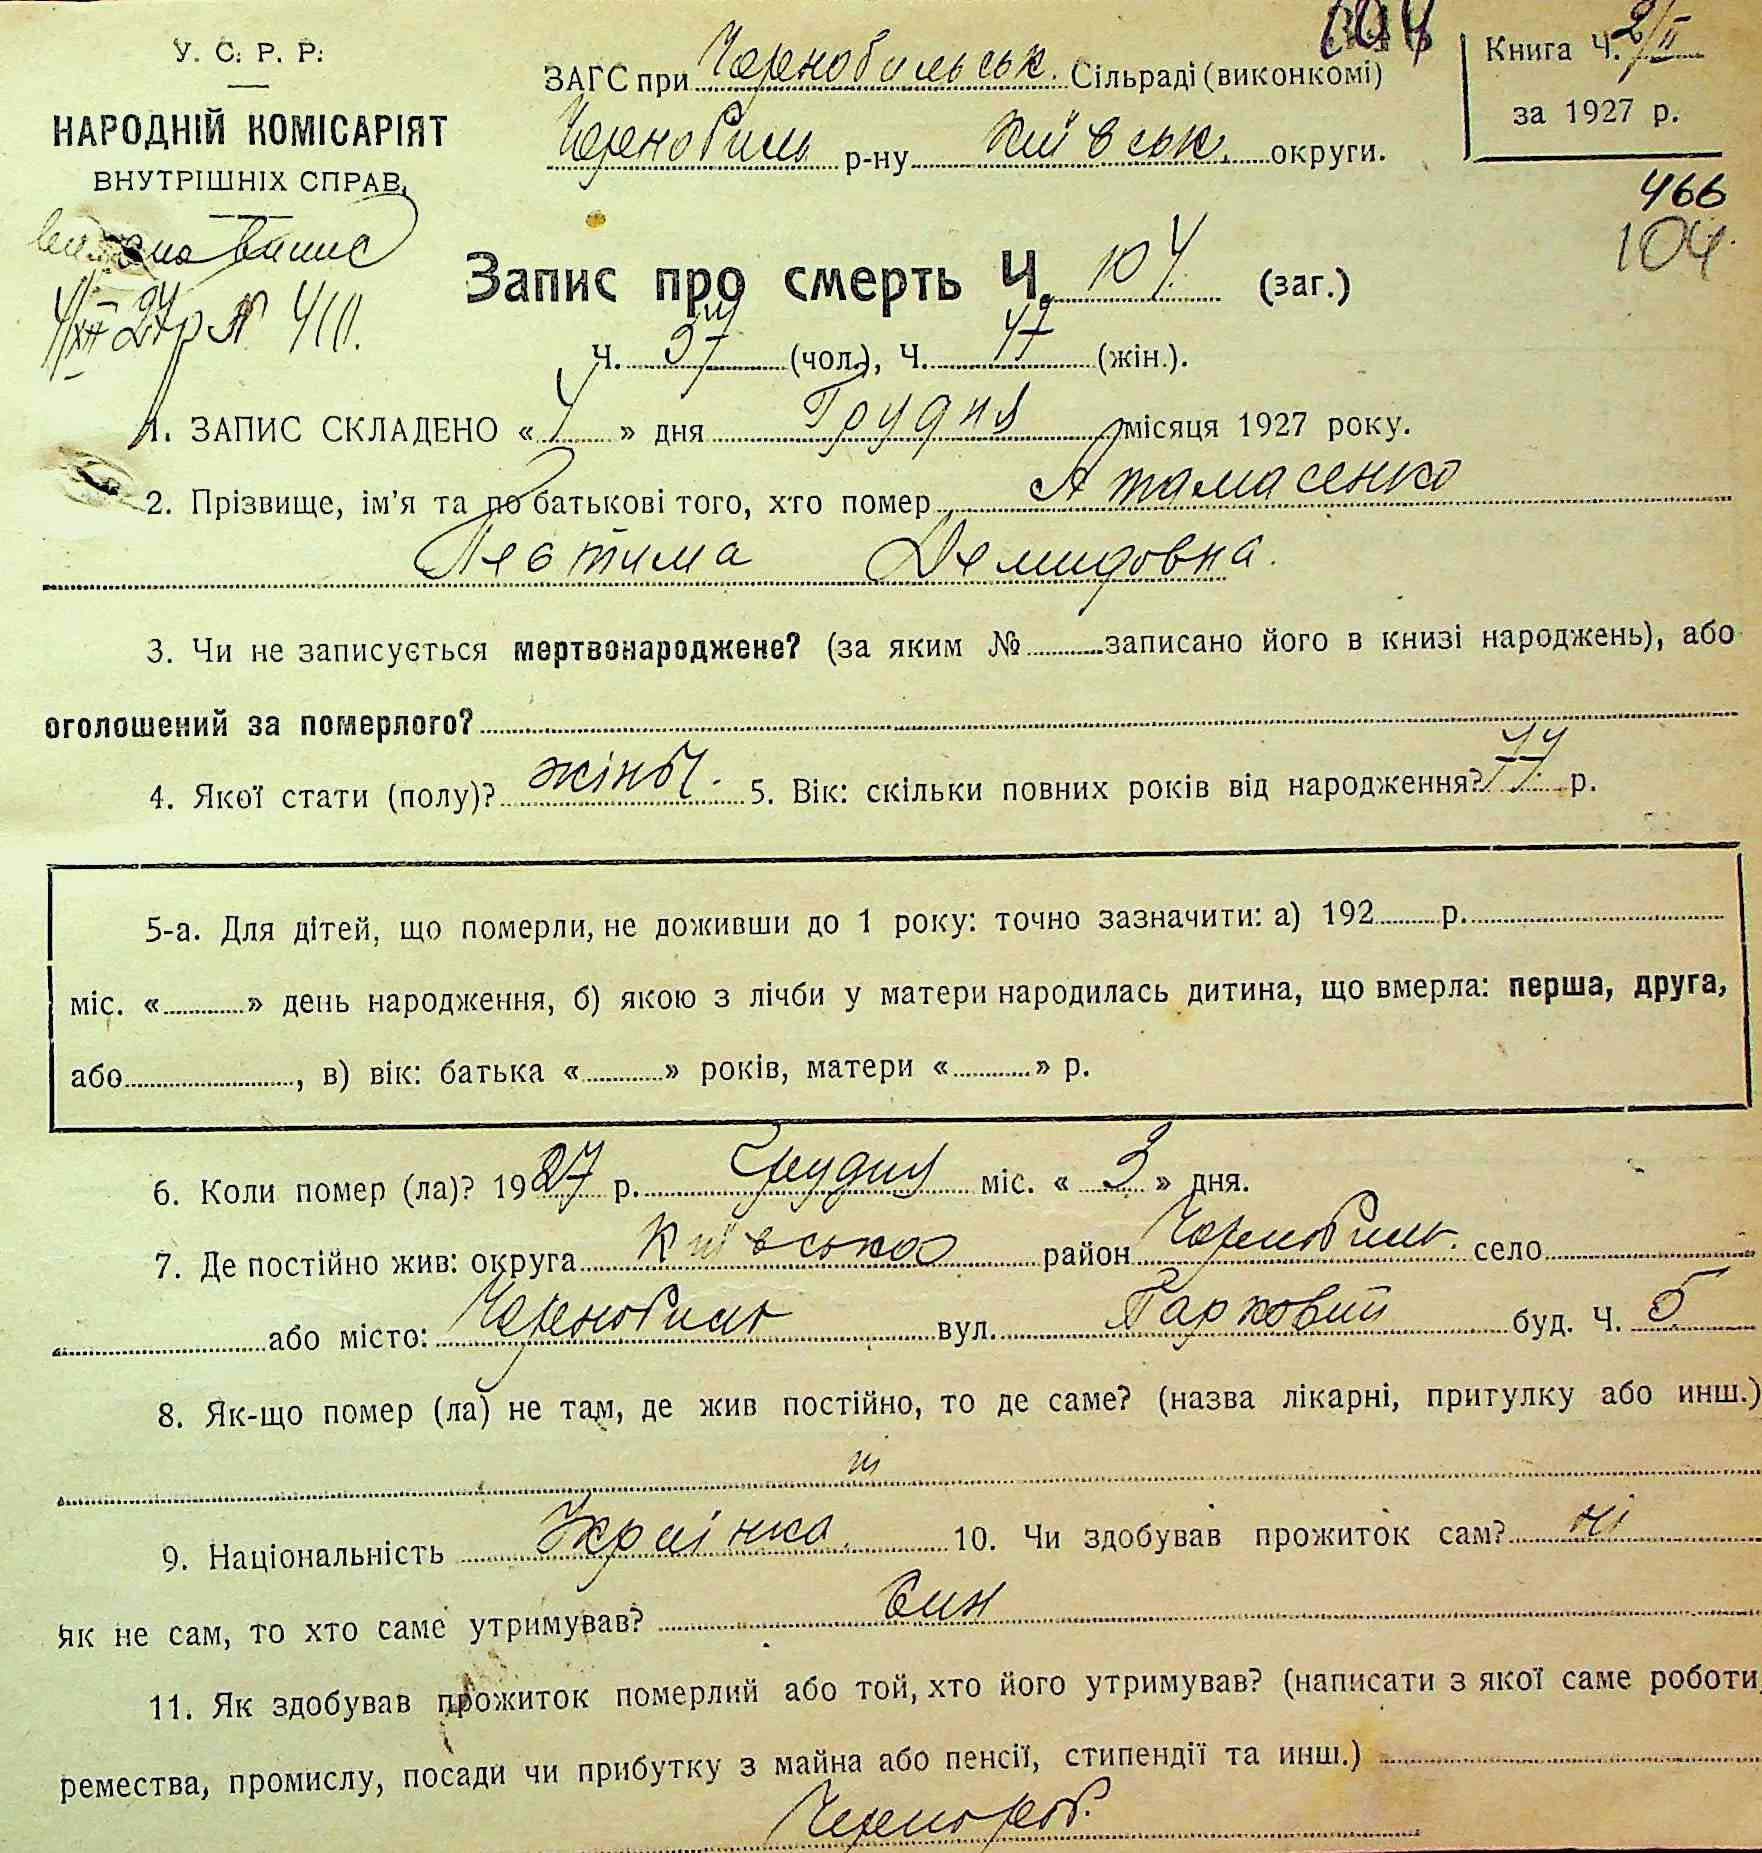 У. С. Р. Р.
НАРОДНІЙ КОМІСАРІЯТ
ВНУТРІШНІХ СПРАВ
ЗАГС при Чернобильськ. Сільраді (виконкомі)
Чернобиль р-ну Київськ. округи.
Книга Ч. 2/II
за 1927 р.
466
104
випис
4/XII 27р № 410.
Запис про смерть Ч. 104. (заг.)
Ч. 57 (чол.), Ч. 47 (жін.).
1. ЗАПИС СКЛАДЕНО « 4 » дня Грудня місяця 1927 року.
2. Прізвище, ім'я та по батькові того, хто помер Атамасенко
Демидовна.
3. Чи не записується мертвонароджене? (за яким № записано його в книзі народжень), або
оголошений за померлого?
4. Якої стати (полу)? жіноч. 5. Вік: скільки повних років від народження? 77 р.
5-а. Для дітей, що померли, не доживши до 1 року: точно зазначити: а) 192 р.
міс. « » день народження, б) якою з лічби у матери народилась дитина, що вмерла: перша, друга,
або , в) вік: батька « » років, матери « » р.
6. Коли помер (ла)? 1927 р. Грудня міс. « 3 » дня.
7. Де постійно жив: округа Київська район Чернобиль. село
або місто: Чернобиль вул. Парковий буд. Ч. 5
8. Як-що помер (ла) не там, де жив постійно, то де саме? (назва лікарні, притулку або инш.)
9. Національність Українка. 10. Чи здобував прожиток сам? ні
Як не сам, то хто саме утримував? син
11. Як здобував прожиток померлий або той, хто його утримував? (написати з якої саме роботи,
ремества, промислу, посади чи прибутку з майна або пенсії, стипендії та инш.)
Чернороб.